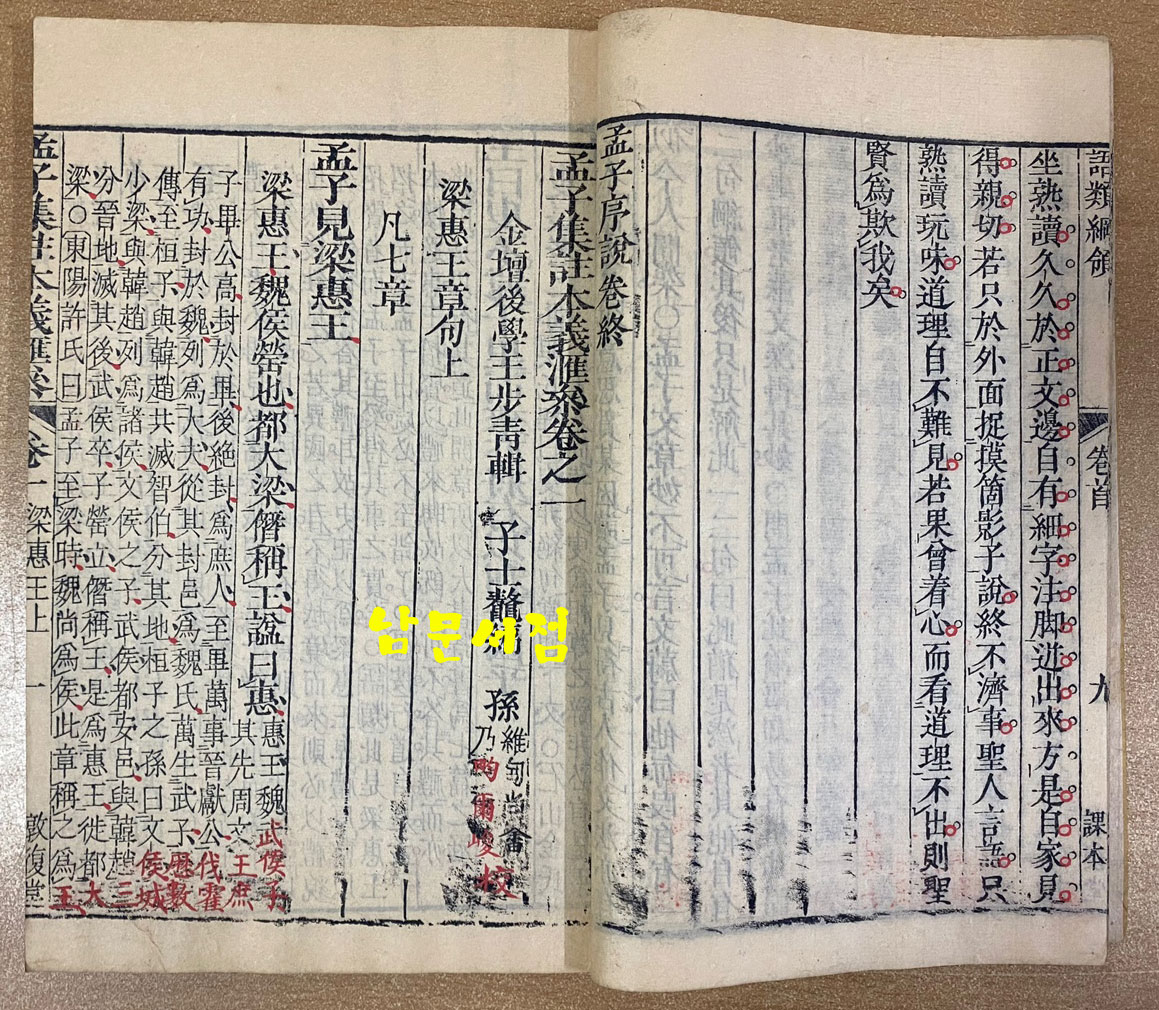 語類綱領 卷首 九 課本
坐熟讀久久於正文邊自有細字注脚迸出來方是自家見
得親切若只於外面捉摸箇影子說終不濟事聖人言語只
熟讀玩味道理自不難見若果曾着心而看道理不出則聖
賢爲欺我矣
孟子序說卷終
孟子集註本義滙叅卷之一
金壇後學王步青輯 子士編 孫
維甸尚畬
乃畇爾畯
挍
梁惠王章句上
凡七章
孟子見梁惠王
梁惠王魏侯罃也都大梁僭稱王諡曰惠
惠王魏武侯子
其先周文王庶
子畢公高封於畢後絕封爲庶人至畢萬事晉獻公伐霍
有功封於魏列爲大夫從其封邑爲魏氏萬生武子歴數
傳至桓子與韓趙共滅智伯分其地桓子之孫曰文侯城
少梁與韓趙列爲諸侯文侯之子武侯都安邑與韓趙三
分晉地滅其後武侯卒子罃立僭稱王是爲惠王徙都大
梁○東陽許氏曰孟子至梁時魏尚爲侯此章稱之爲王
孟子集註本義滙叅 卷一 梁惠王上 一 敦復堂
남문서점